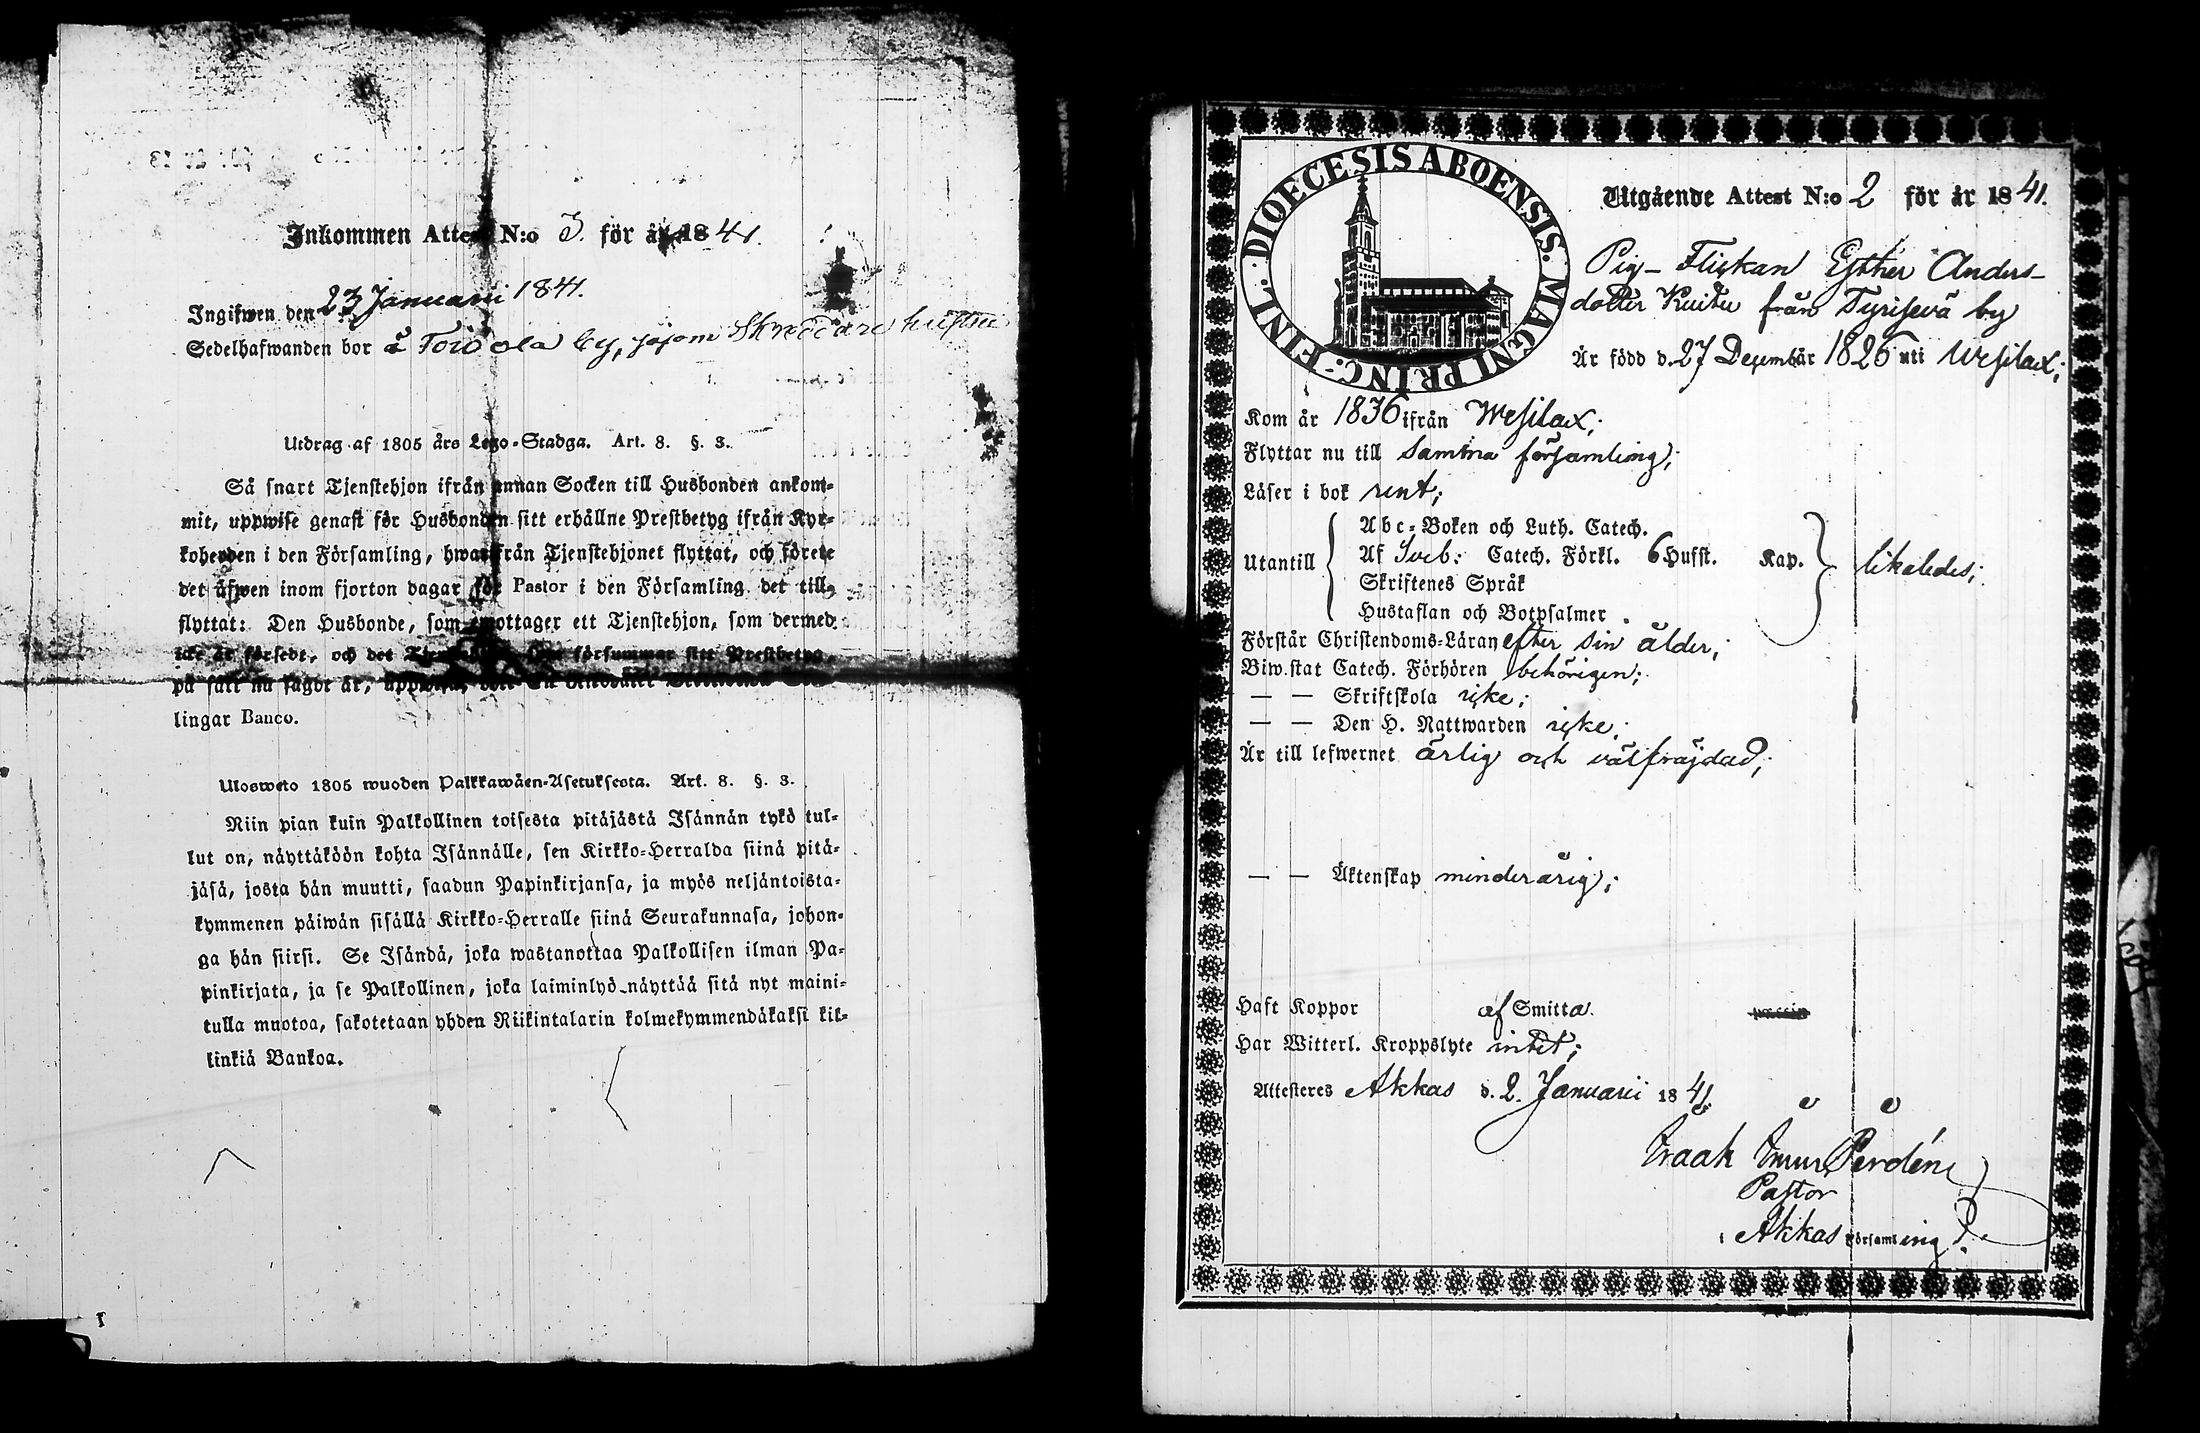 Inkommen Attest N:o 3. för år 1841.
Ingifwen den 23 Januarii 1841.
Sedelhafwanden bor å Toivola by, såsom Skräddare hustru
Utdrag af 1805 års Lego-Stadga. Art. 8. §. 3.
Så snart Tjenstehjon ifrån annan Socken till Husbonden ankom-
mit, uppwise genast för Husbonden sitt erhållne Prestbetyg ifrån Kyr-
koherden i den Församling, hwarifrån Tjenstehjonet flyttat, och förete
det äfwen inom fjorton dagar för Pastor i den Församling det till-
flyttat: Den Husbonde, som emottager ett Tjenstehjon, som dermed
icke är försedt, och det försummar sitt Prestbetyg,
på sätt nu sagdt är, uppwisa,
lingar Banco.
Ulosweto 1805 wuoden Palkkawäen-Asetuksesta. Art. 8. §. 3.
Niin pian kuin Palkollinen toisesta pitäjästä Isännän tykö tul-
lut on, näyttäköön kohta Isännälle, sen Kirkko-Herralda siinä pitä-
jäsä, josta hän muutti, saadun Papinkirjansa, ja myös neljäntoista-
kymmenen päiwän sisällä Kirkko-Herralle siinä Seurakunnasa, johon-
ga hän siirsi. Se Isändä, joka wastanottaa Palkollisen ilman Pa-
pinkirjata, ja se Palkollinen, joka laiminlyö näyttää sitä nyt maini-
tulla muotoa, sakotetaan yhden Riikintalarin kolmekymmendäkaksi kil-
linkiä Bankoa.
DIOECESIS ABOENSIS. MAGNI PRINC: FINL.
Utgående Attest N:o 2 för år 1841.
Pig-Flickan Esther Anders-
dotter Kuitu från Tyrisevä by
Är född d. 27 December år 1826 uti Wesilax;
Kom år 1836 ifrån Wesilax;
Flyttar nu till samma församling;
Läser i bok rent;
Utantill
Abc-Boken och Luth. Catech.
Af Sveb: Catech. Förkl. 6 Hufst. Kap.
Skriftenes Språk
Hustaflan och Botpsalmer
likaledes;
Förstår Christendoms-Läran efter sin ålder;
Biw.stat Catech. Förhören behörigen;
— — Skriftskola icke;
— — Den H. Nattwarden icke;
Är till lefwernet ärlig och välfräjdad;
— — Äktenskap minderårig;
Haft Koppor af Smitta.
Har Witterl. Kroppslyte intet;
Attesteras Akkas d. 2. Januarii 1841.
Pastor
i Akkas Församling.